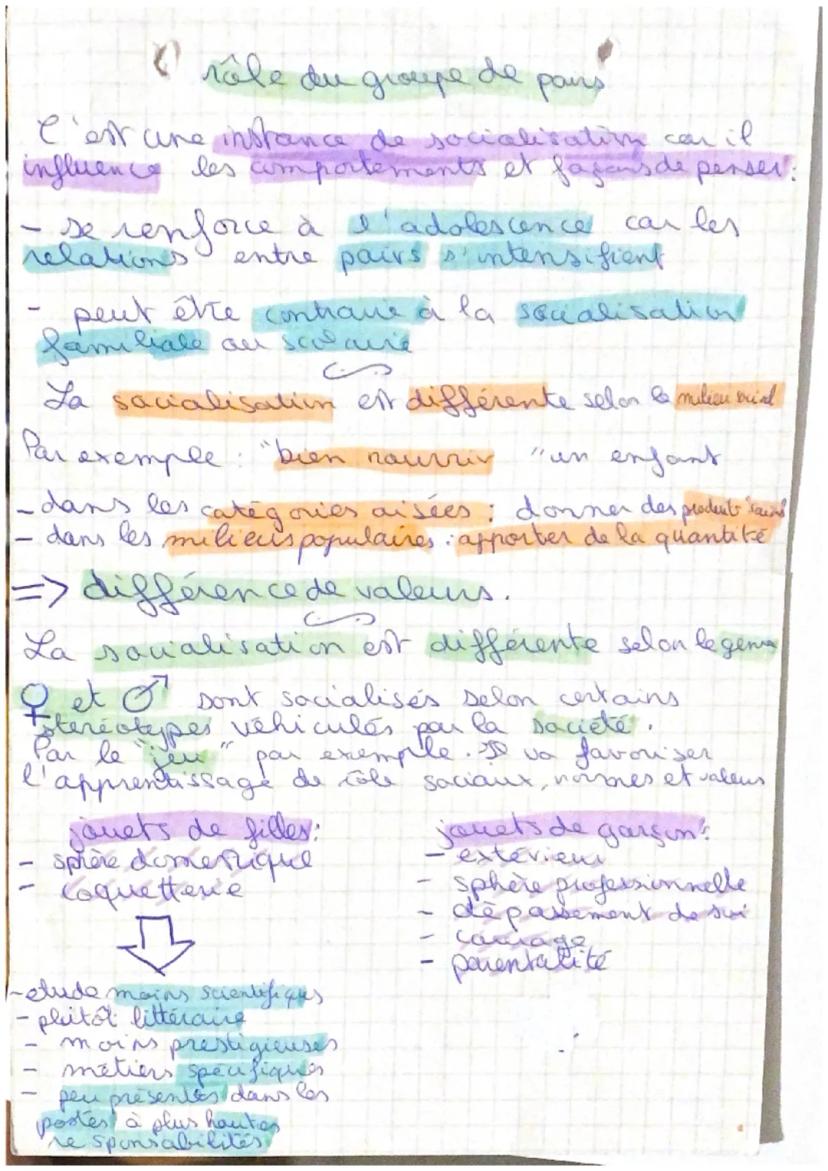 rôle du groupe de pairs
C'est une instance de socialisation car il
influence les comportements et façons de penser :
- se renforce à l'adolescence car les
relations entre pairs s'intensifient
- peut être contraire à la socialisation
familiale ou scolaire
La socialisation est différente selon le milieu social
Par exemple : "bien nourrir" un enfant
- dans les catégories aisées : donner des produits "sains"
- dans les milieus populaires : apporter de la quantité
=> différence de valeurs.
La socialisation est différente selon le genre
♀ et ♂ sont socialisés selon certains
stéréotypes véhiculés par la société.
Par le "jeu" par exemple. Il va favoriser
l'apprentissage de rôle sociaux, normes et valeurs
jouets de filles :
- sphère domestique
- coquetterie
jouets de garçon :
- extérieur
- sphère professionnelle
- dépassement de soi
- courage
- parentalité
- etude moins scientifiques
- plutôt littéraire
- moins prestigieuses
- métiers spécifiques
- peu présentes dans les
postes à plus hautes
responsabilités